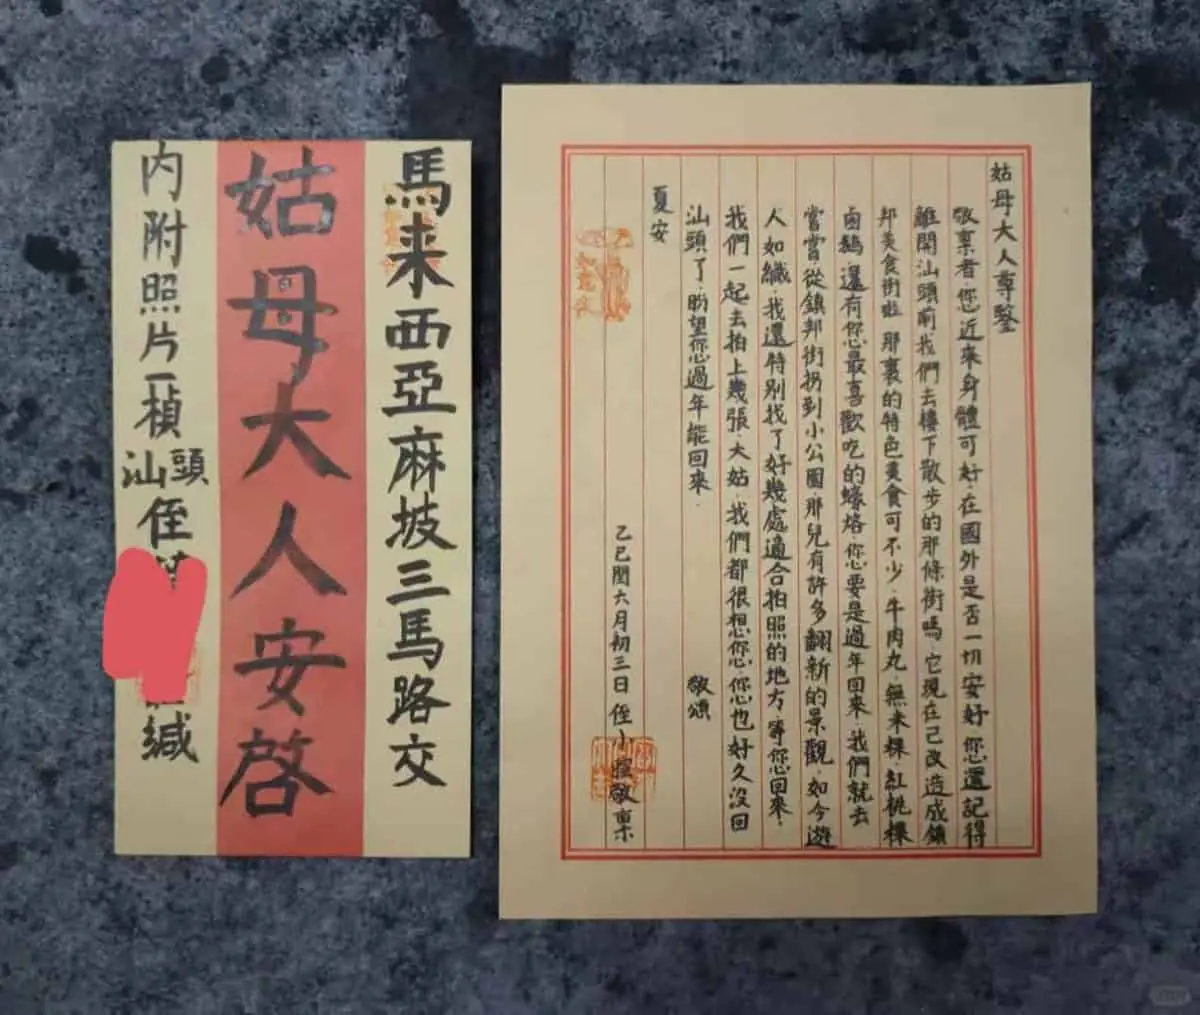 馬来西亞麻坡三馬路交
姑母大人安啓
内附照片一楨
汕頭侄 緘
姑母大人尊鑒
敬稟者,您近來身體可好,在國外是否一切安好,您還記得
離開汕頭前我們去樓下散步的那條街嗎,它現在已改造成鎮
邦美食街啦,那裏的特色美食可不少,牛肉丸、無米粿、紅桃粿
鹵鵝,還有您最喜歡吃的蠔烙,您要是過年回來,我們就去
嘗嘗,從鎮邦街拐到小公園那兒有許多翻新的景觀,如今遊
人如織,我還特別找了好幾處適合拍照的地方,等您回來,
我們一起去拍上幾張,大姑,我們都很想您,您也好久沒回
汕頭了,盼望您過年能回來. 敬頌
夏安
乙巳閏六月初三日 侄小 敬稟